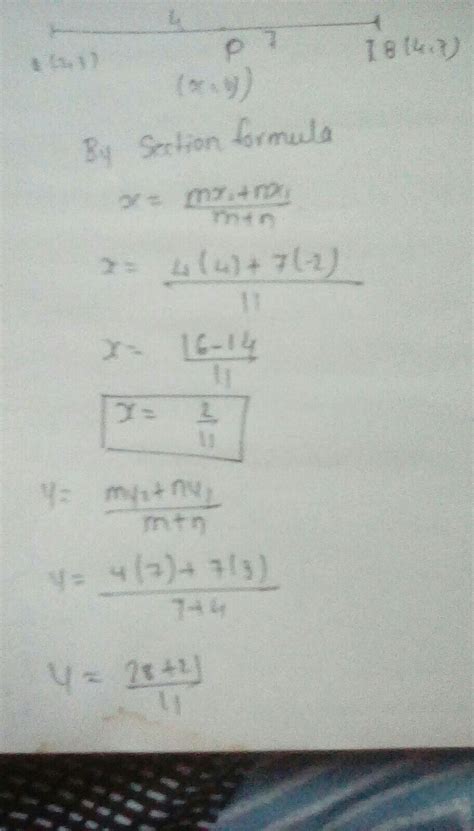 4
P 7
B (4,7)
(x,y)
By Section formula
x = mx₂+nx₁ / m+n
x = 4(4)+7(-2) / 11
x = 16-14 / 11
x = 2 / 11
y = my₂+ny₁ / m+n
y = 4(7)+7(3) / 7+4
y = 28+21 / 11